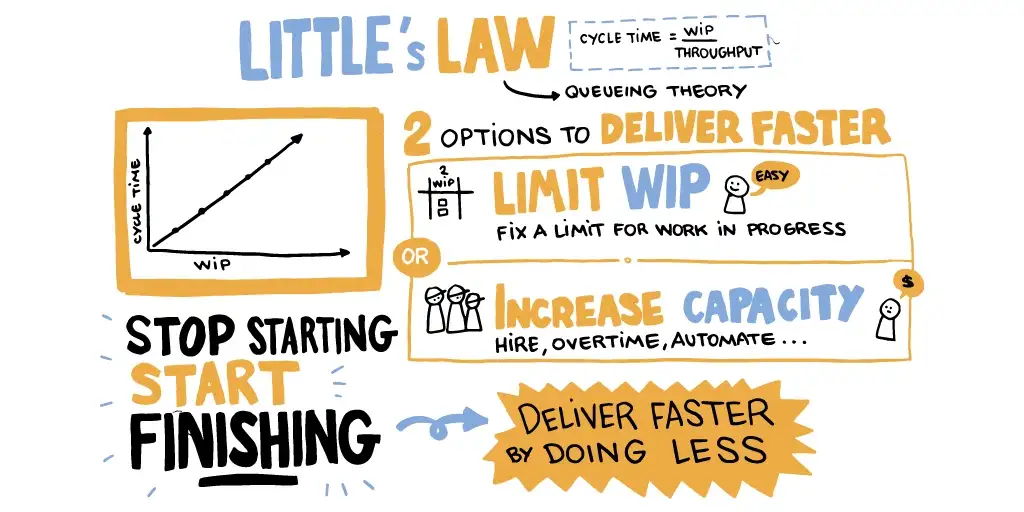 LITTLE's LAW
CYCLE TIME = WIP
THROUGHPUT
QUEUEING THEORY
CYCLE TIME
WIP
2 OPTIONS TO DELIVER FASTER
2
WIP
LIMIT WIP
EASY
FIX A LIMIT FOR WORK IN PROGRESS
OR
INCREASE CAPACITY
$
HIRE, OVERTIME, AUTOMATE...
STOP STARTING
START
FINISHING
DELIVER FASTER
BY DOING LESS